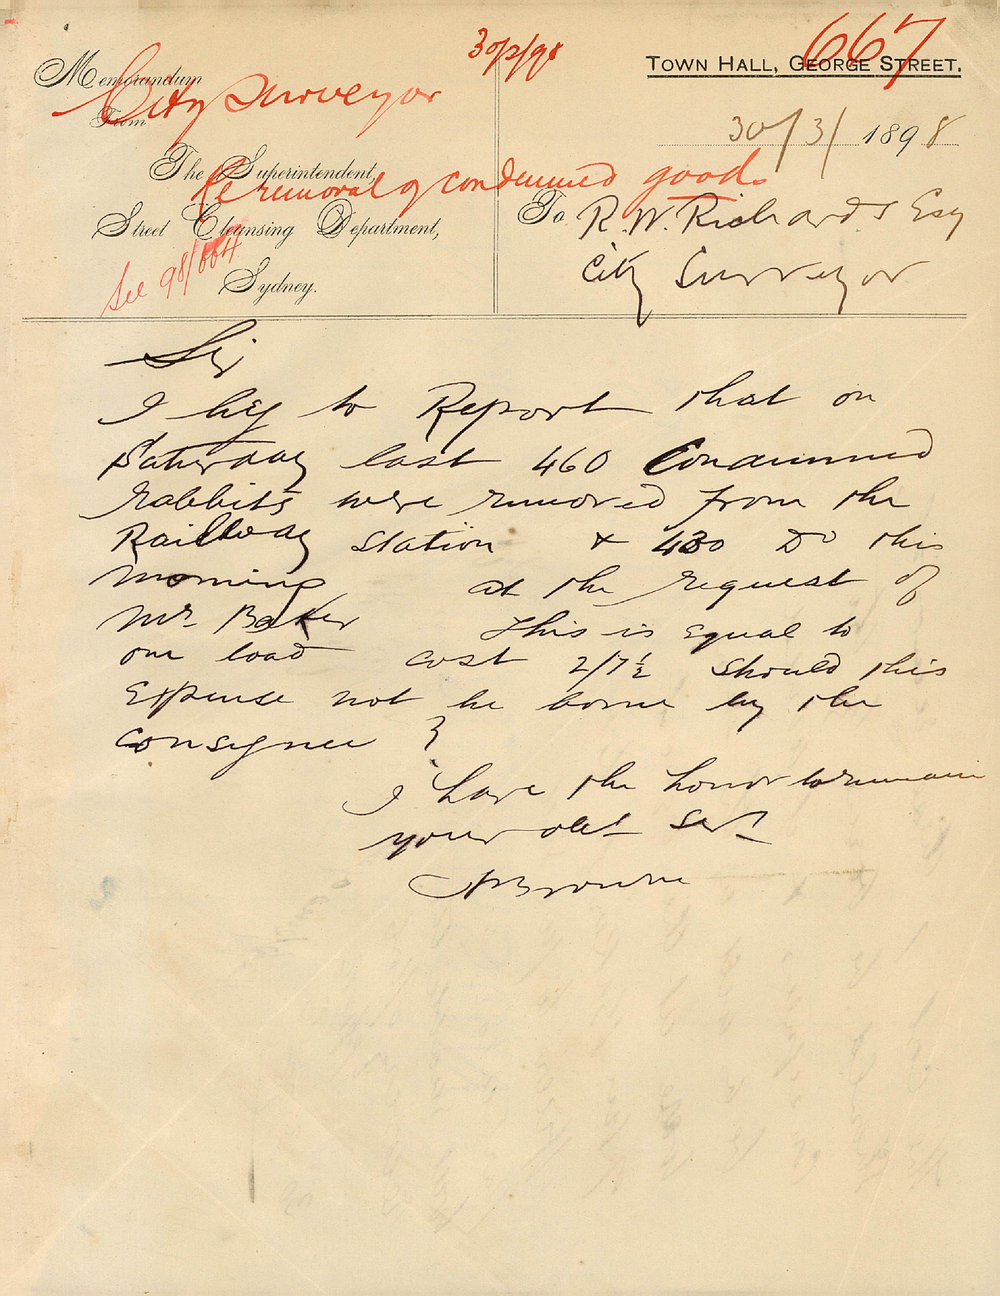 667
30/3/98
Town Hall, George Street.
Memorandum
City Surveyor
From
30/3/ 1898
The Superintendent,
Re removal of condemned goods
Street Cleansing Department,
To R. W. Richards Esq
See 98/664
City Surveyor
Sydney.
Sir
I beg to Report that on
Saturday last 460 Condemned
rabbits were removed from the
Railway Station & 430 Do this
morning at the request of
Mr. Baker This is equal to
one load cost 2/7½ Should this
Expense not be borne by the
Consignee ?
I have the honor to remain
your obt Servt
Browne